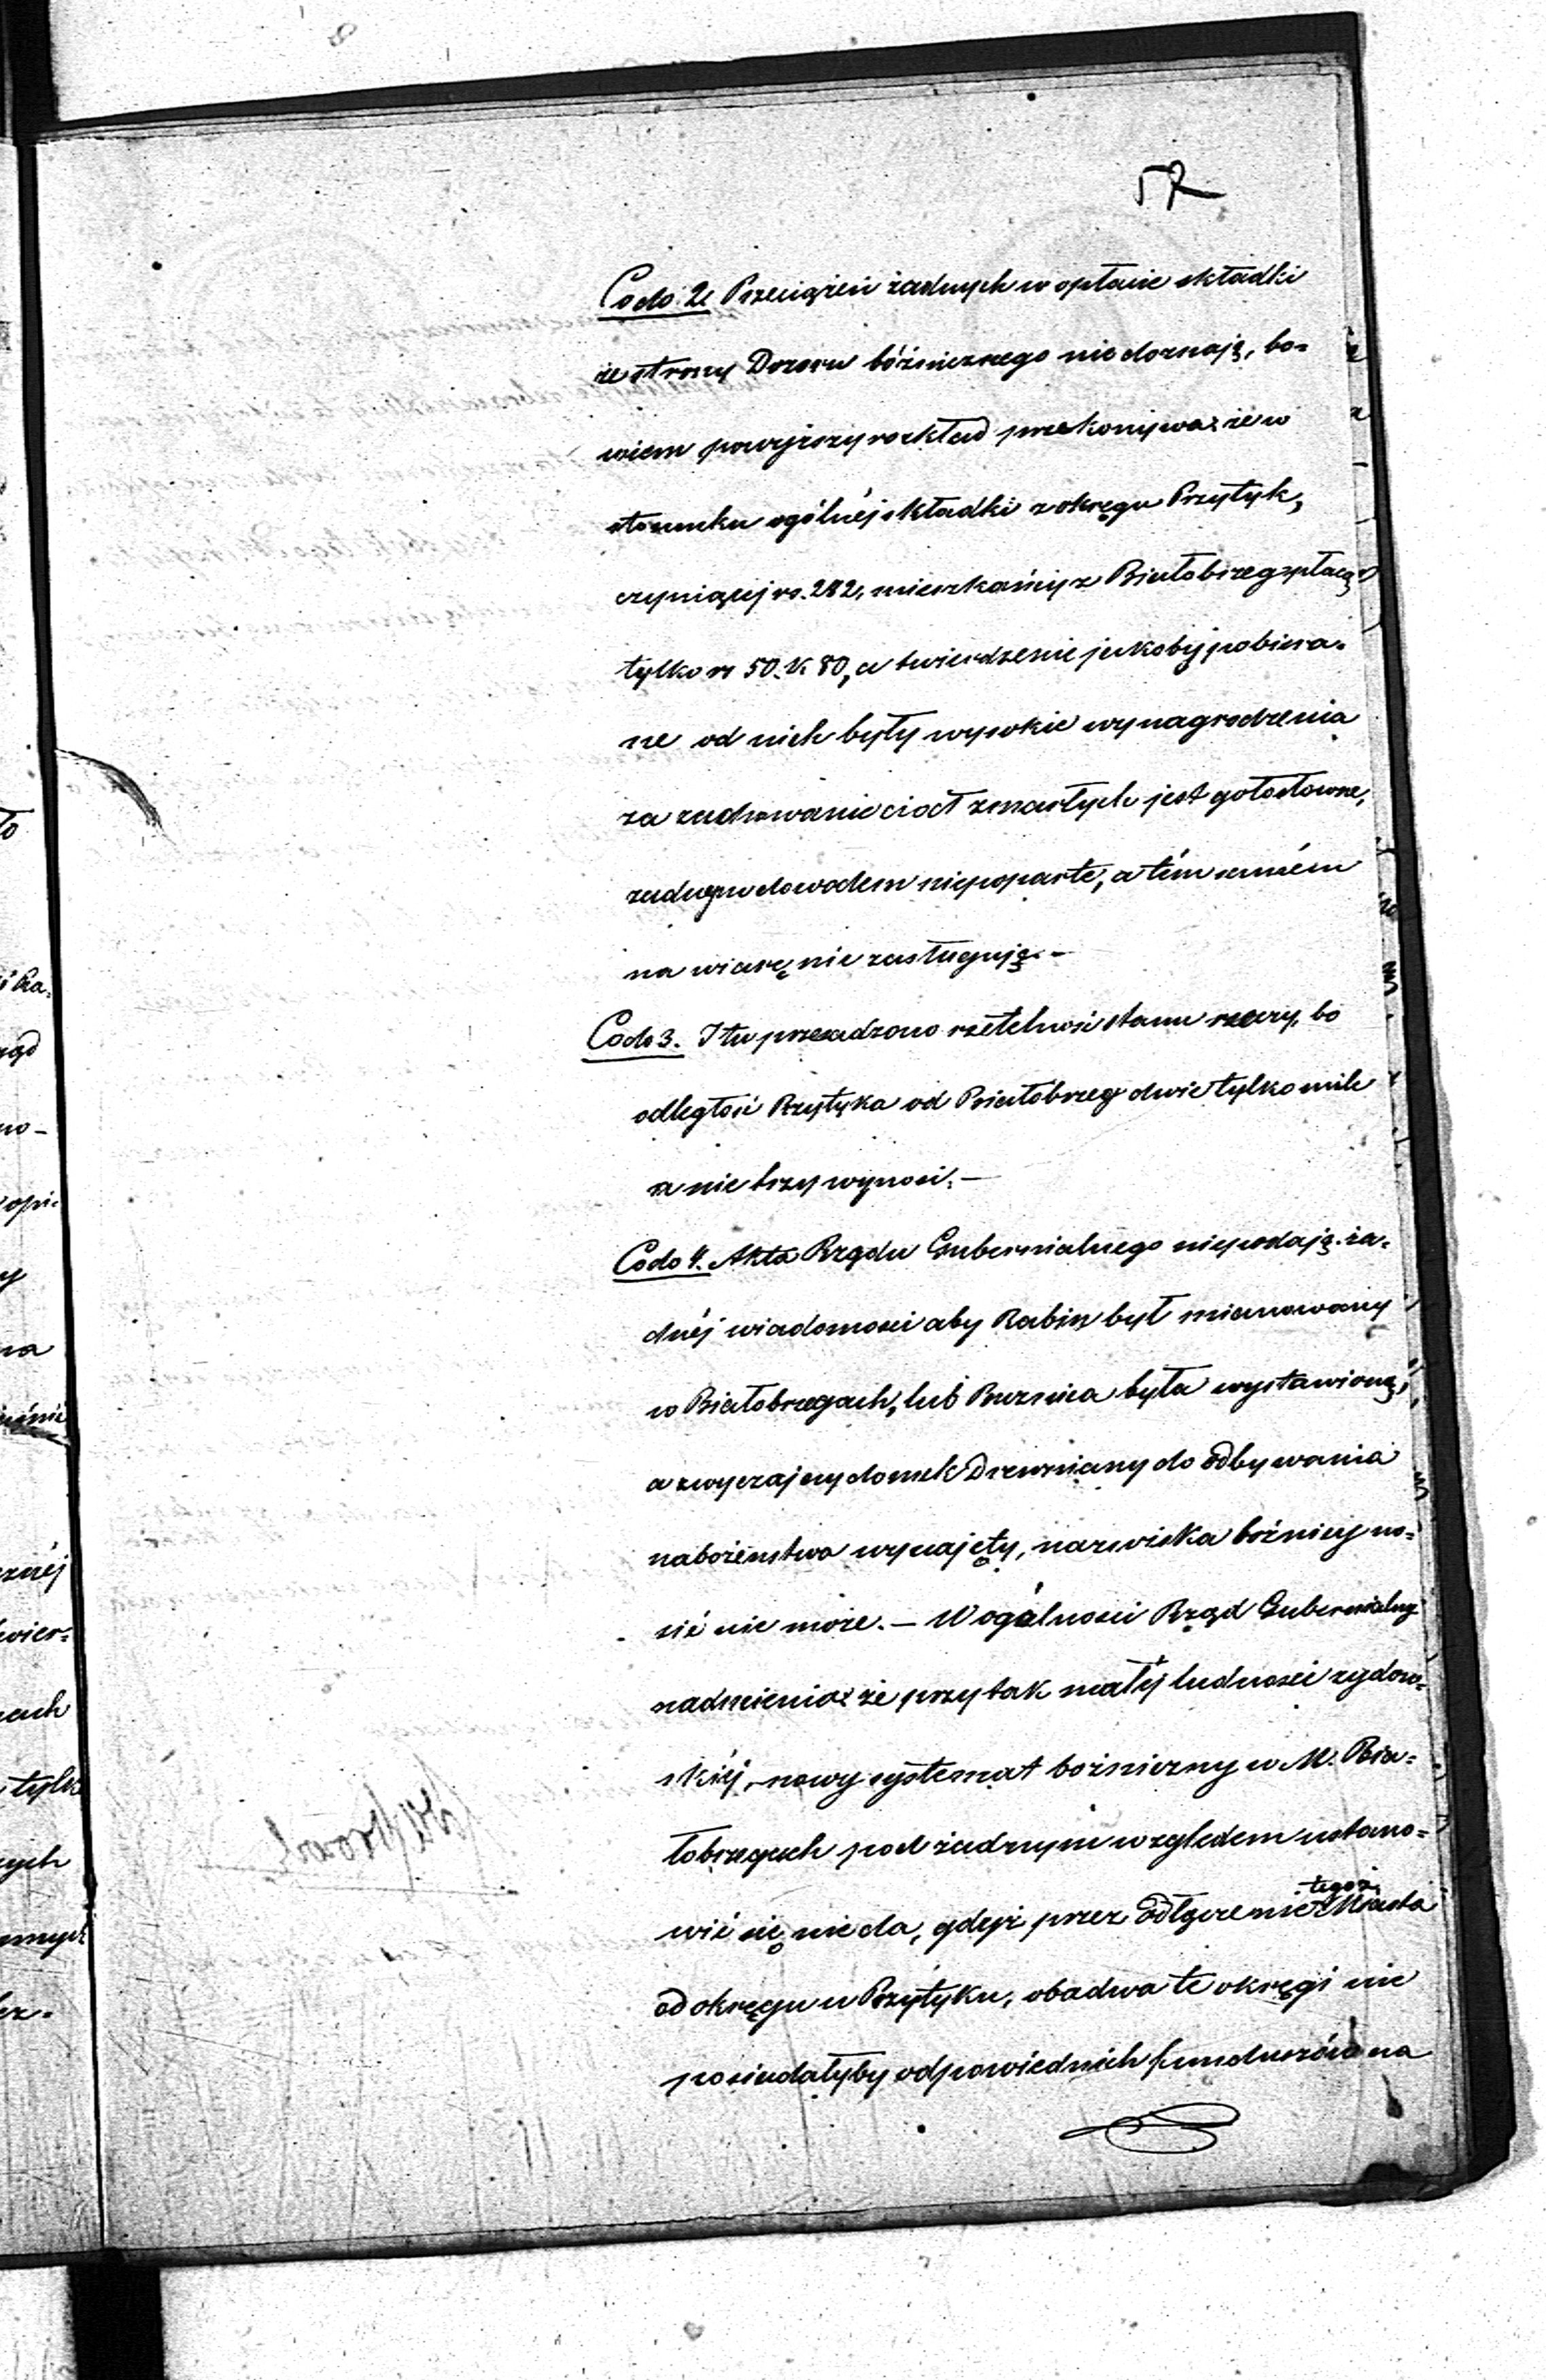 57
Co do 2e Przeciążeń żadnych w opłacie składki
ze strony Dozoru bóżniczego nie doznają, bo=
wiem powyższy rozkład przekonywa: że w
stosunku ogólnéj składki z okręgu Przytyk,
czyniącéj rs. 282, mieszkańcy z Białobrzeg płacą
tylko rs 50. k 80, a twierdzenie jakoby pobiera=
ne od nich były wysokie wynagrodzenia
za zachowanie ciał zmarłych jest gołosłowne,
żadnym dowodem niepoparte, a tém samém
na wiarę nie zasługuje. –
Co do 3. I tu przesadzono rzetelność stanu rzeczy, bo
odległość Przytyka od Białobrzeg dwie tylko mile
a nie trzy wynosi. –
Co do 4. Akta Rządu Gubernialnego niepodają ża=
dnéj wiadomości aby Rabin był mianowany
w Białobrzegach, lub Buznica była wystawioną,
a zwyczajny domek Drewniany do odbywania
nabożeństwa wynajęty, nazwiska bóżnicy no=
sić nie może. – W ogólności Rząd Gubernialny
nadmienia: że przy tak małéj ludności żydow=
skiéj, nowy systemat bożniczny w M. Bia=
łobrzegach pod żadnym względem ustano=
wić się nie da, gdyż przez odłączenie tegoż Miasta
od okręgu w Przytyku, obadwa te okręgi nie
posiadałyby odpowiednich funduszów na